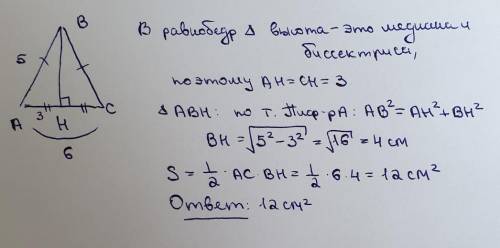 В равнобедр Δ высота - это медиана и
биссектриса,
поэтому AH = CH = 3
Δ ABH: по т. Пиф-рА: AB² = AH² + BH²
BH = √5² - 3² = √16 = 4 см
S = 1/2 · AC · BH = 1/2 · 6 · 4 = 12 см²
Ответ: 12 см²
B
5
A 3 H C
6